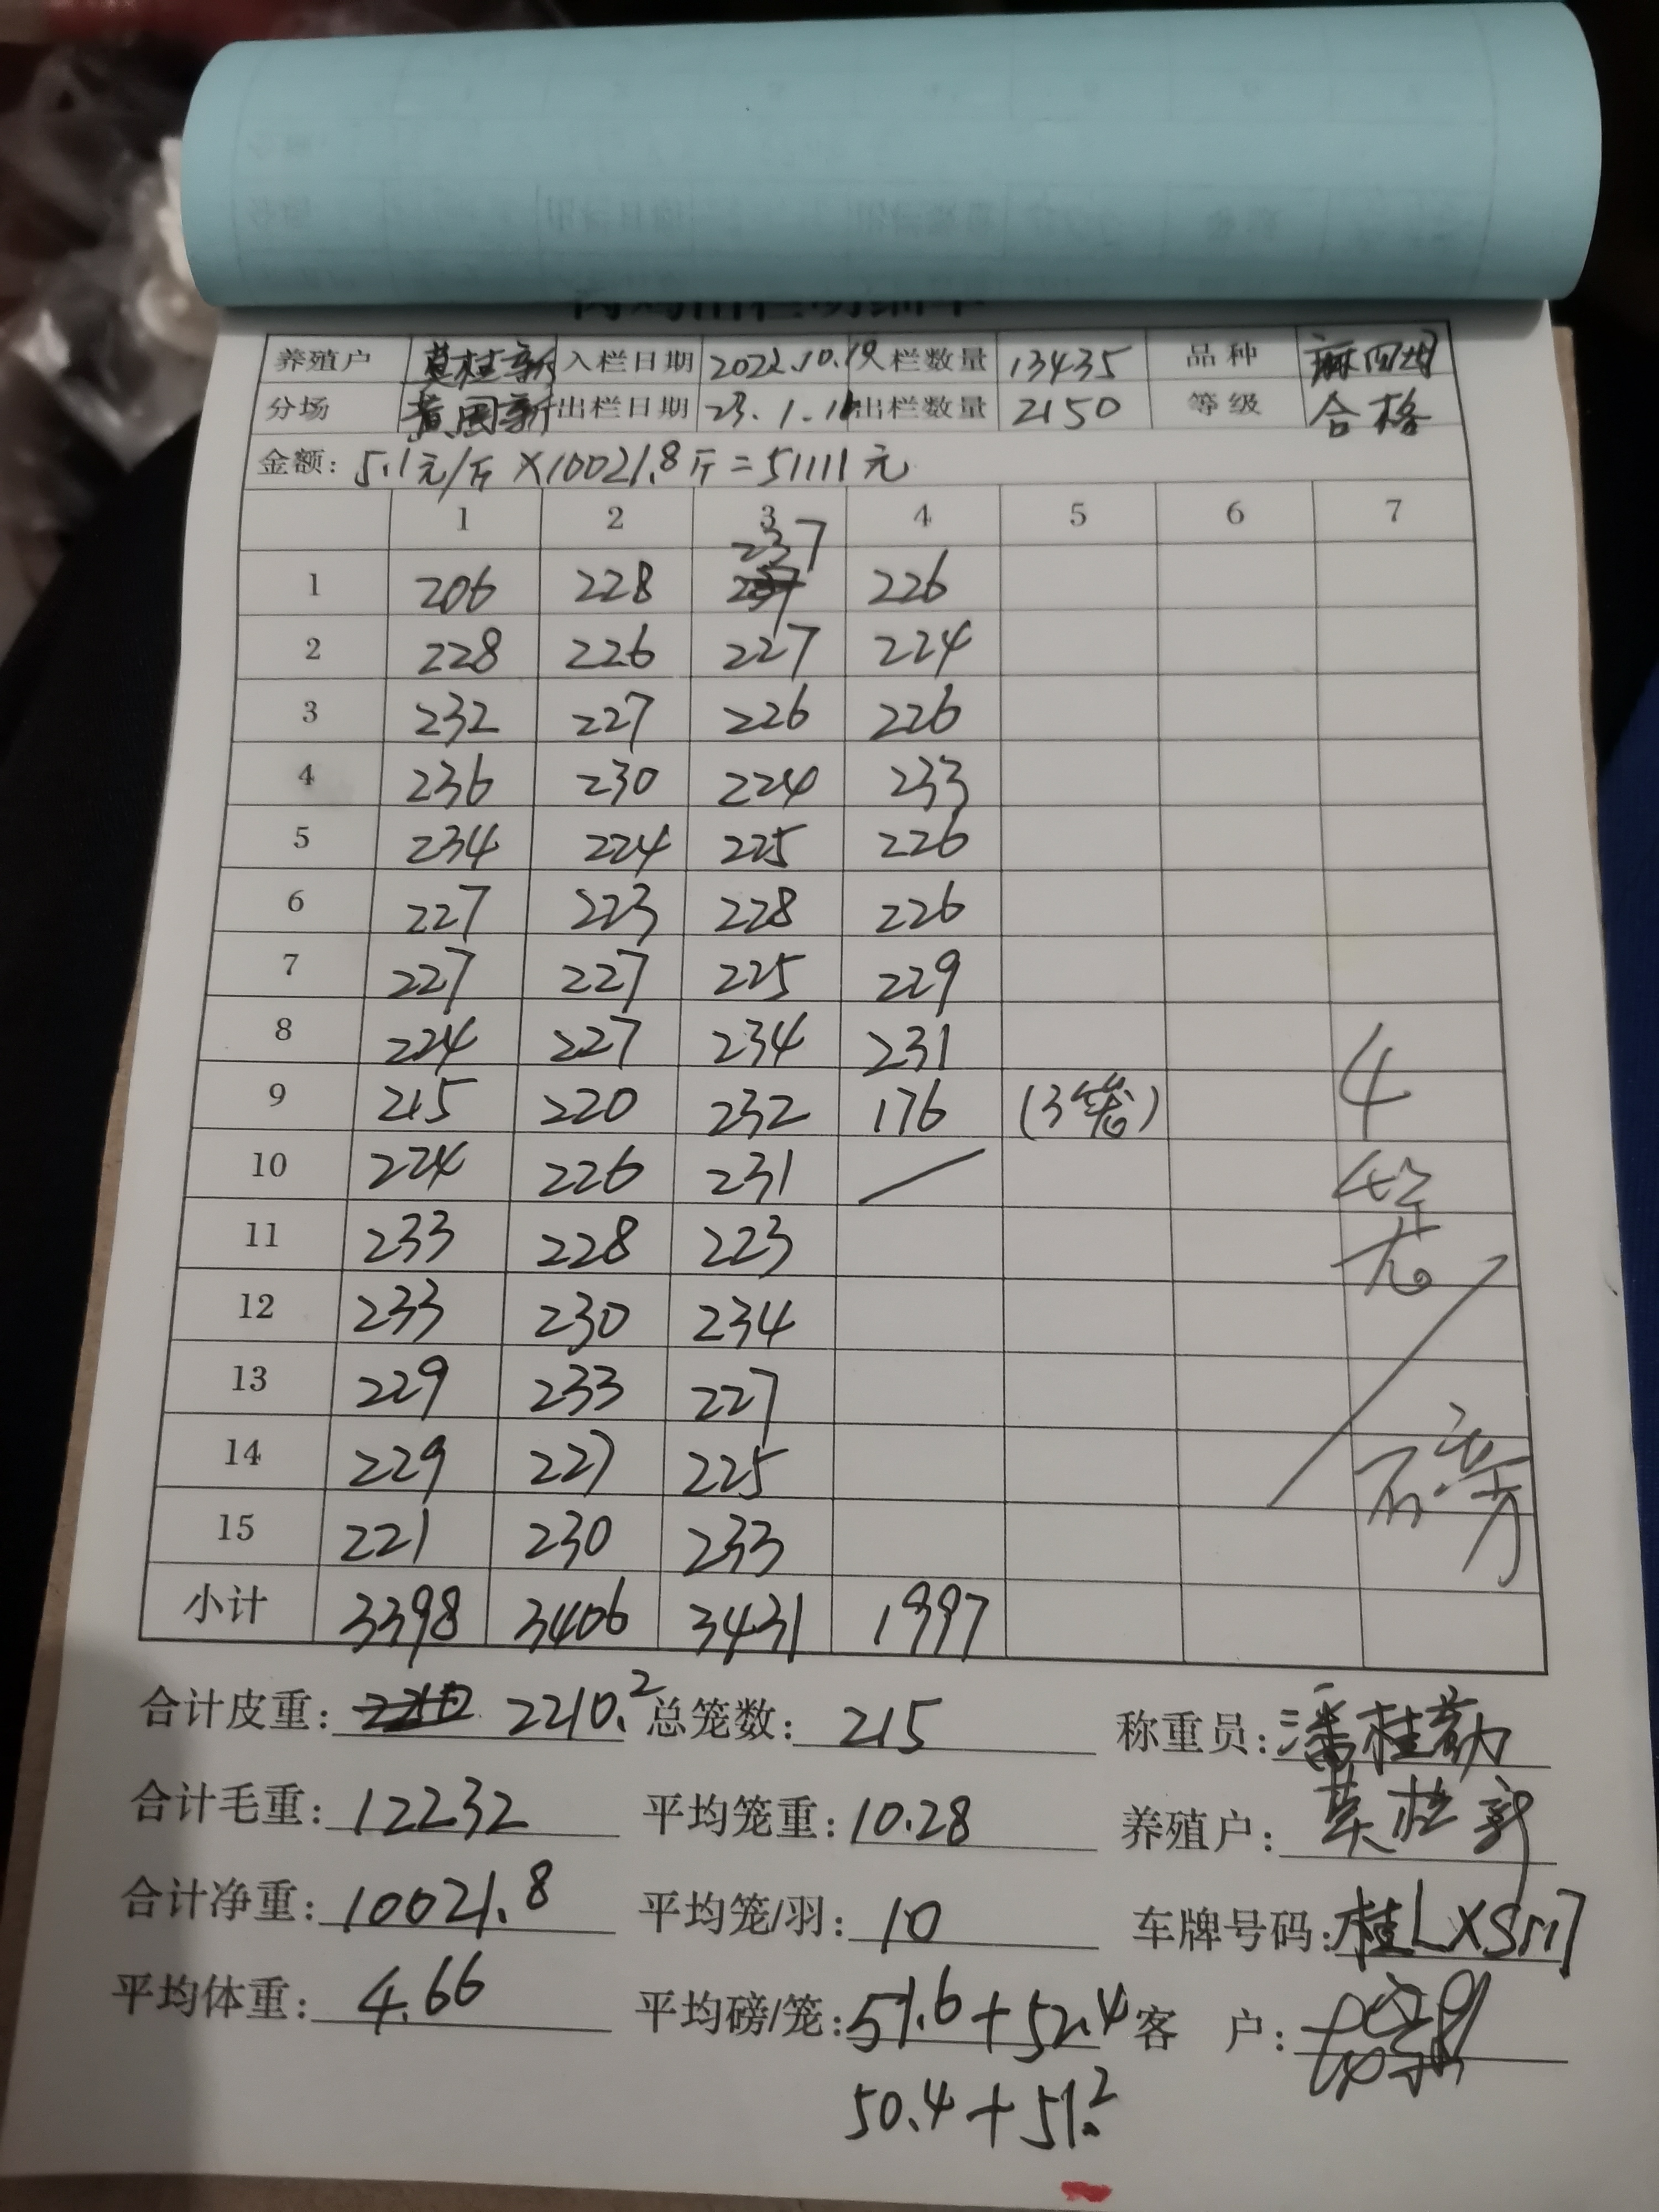 养殖户 莫桂新 入栏日期 2022.10.19 入栏数量 13435 品种
分场 黄国新 出栏日期 23.1.1 出栏数量 2150 等级 合格
金额: 5.1元/斤×10021.8斤=51111元
1 2 3 4 5 6 7
237
1 206 228 226
2 228 226 227 224
3 232 227 226 226
4 236 230 224 233
5 234 224 225 226
6 227 223 228 226
7 227 227 225 229
8 224 227 234 231
9 215 220 232 176 (3笼)
10 224 226 231 /
11 233 228 223
12 233 230 234
13 229 233 227
14 229 227 225
15 221 230 233
小计 3398 3406 3431 1997
4
笼
/
磅
合计皮重: 2210.2 总笼数: 215 称重员: 潘桂勤
合计毛重: 12232 平均笼重: 10.28 养殖户: 莫桂新
合计净重: 10021.8 平均笼/羽: 10 车牌号码: 桂LXS117
平均体重: 4.66 平均磅/笼: 51.6+52.4 客 户:
50.4+51.2